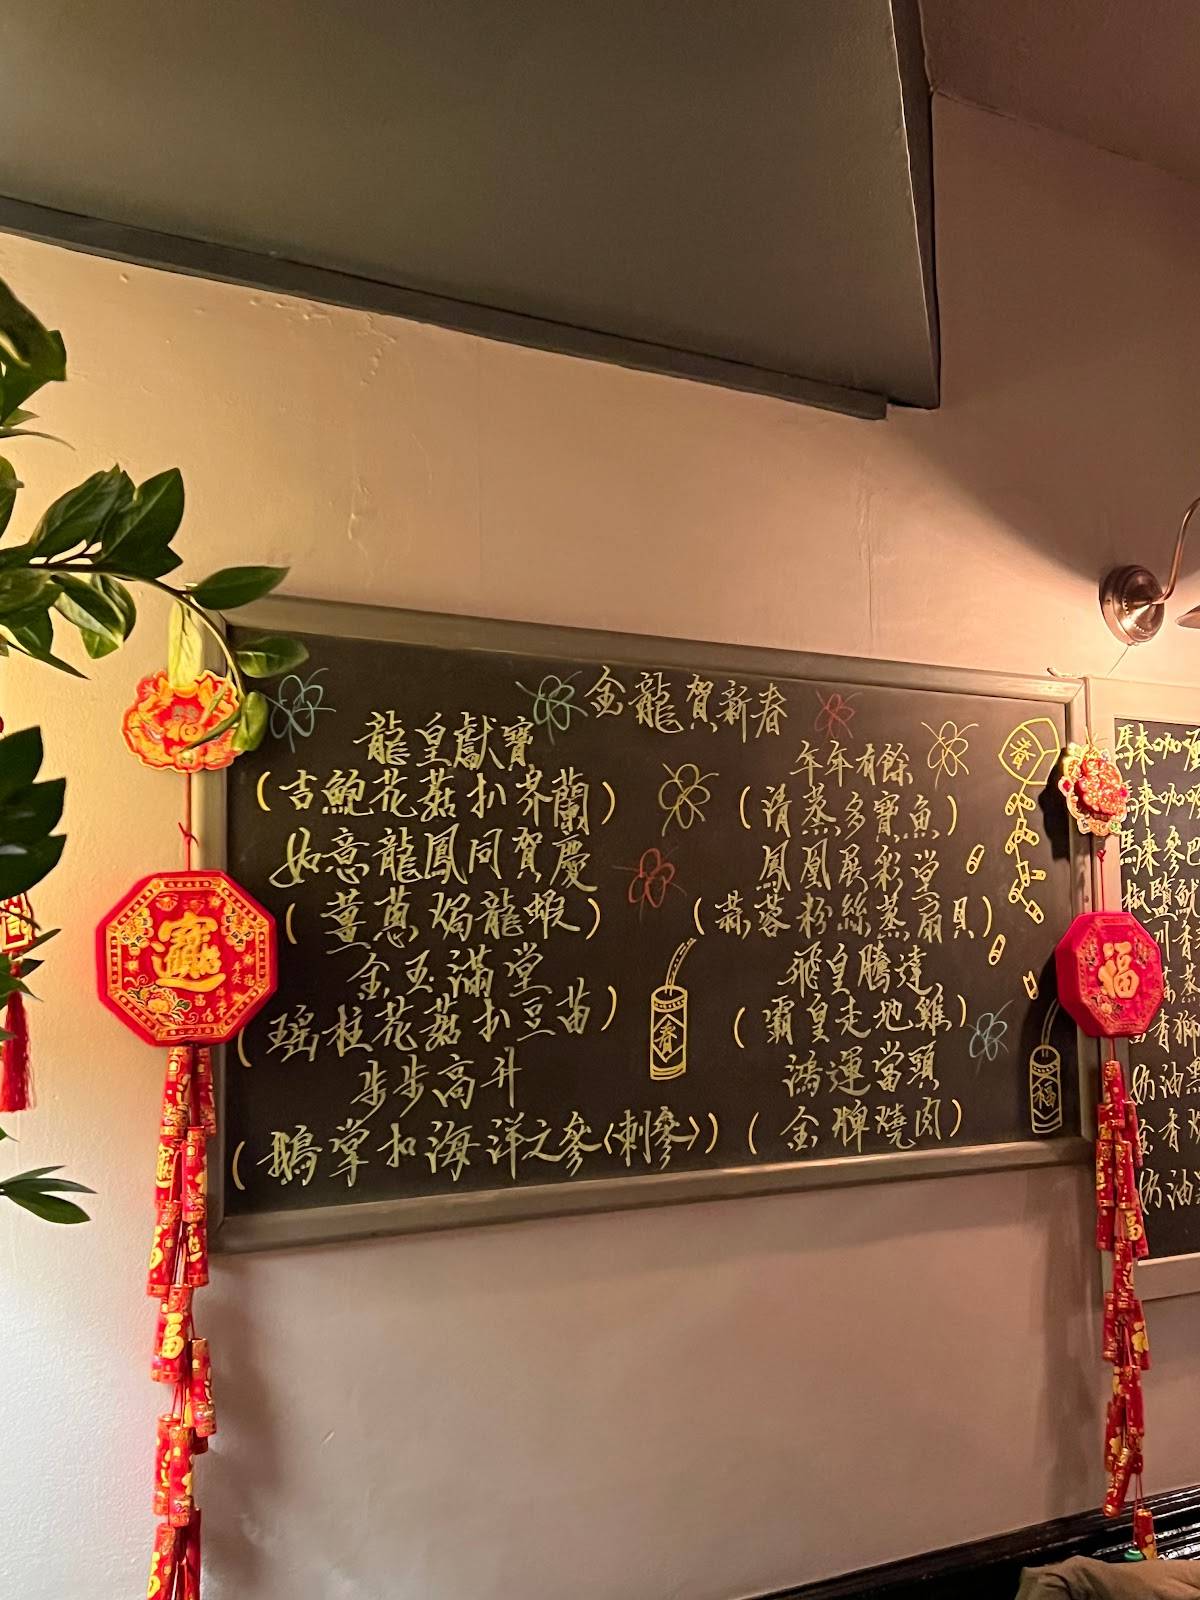 金龍賀新春
龍皇獻寶
(吉鮑花菇扒芥蘭)
如意龍鳳同賀慶
(薑蔥焗龍蝦)
金玉滿堂
(瑶柱花菇扒豆苗)
步步高升
(鵝掌扣海洋之參<刺參>)
年年有餘
(清蒸多寶魚)
鳳凰展彩堂
(蒜蓉粉絲蒸扇貝)
飛皇騰達
(霸皇走地雞)
鴻運當頭
(金牌燒肉)
春
春
福
福
福
福
馬來咖
馬來咖
馬來參巴
椒鹽魷
川香
蒸
香獅
奶油
金香
奶油